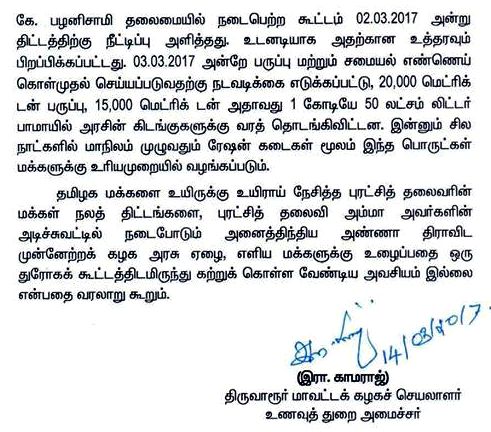 கே. பழனிசாமி தலைமையில் நடைபெற்ற கூட்டம் 02.03.2017 அன்று
திட்டத்திற்கு நீட்டிப்பு அளித்தது. உடனடியாக அதற்கான உத்தரவும்
பிறப்பிக்கப்பட்டது. 03.03.2017 அன்றே பருப்பு மற்றும் சமையல் எண்ணெய்
கொள்முதல் செய்யப்படுவதற்கு நடவடிக்கை எடுக்கப்பட்டு, 20,000 மெட்ரிக்
டன் பருப்பு, 15,000 மெட்ரிக் டன் அதாவது 1 கோடியே 50 லட்சம் லிட்டர்
பாமாயில் அரசின் கிடங்குகளுக்கு வரத் தொடங்கிவிட்டன. இன்னும் சில
நாட்களில் மாநிலம் முழுவதும் ரேஷன் கடைகள் மூலம் இந்த பொருட்கள்
மக்களுக்கு உரியமுறையில் வழங்கப்படும்.
தமிழக மக்களை உயிருக்கு உயிராய் நேசித்த புரட்சித் தலைவரின்
மக்கள் நலத் திட்டங்களை, புரட்சித் தலைவி அம்மா அவர்களின்
அடிச்சுவட்டில் நடைபோடும் அனைத்திந்திய அண்ணா திராவிட
முன்னேற்றக் கழக அரசு ஏழை, எளிய மக்களுக்கு உழைப்பதை ஒரு
துரோகக் கூட்டத்திடமிருந்து கற்றுக் கொள்ள வேண்டிய அவசியம் இல்லை
என்பதை வரலாறு கூறும்.
14/03/2017
(இரா. காமராஜ்)
திருவாரூர் மாவட்டக் கழகச் செயலாளர்
உணவுத் துறை அமைச்சர்